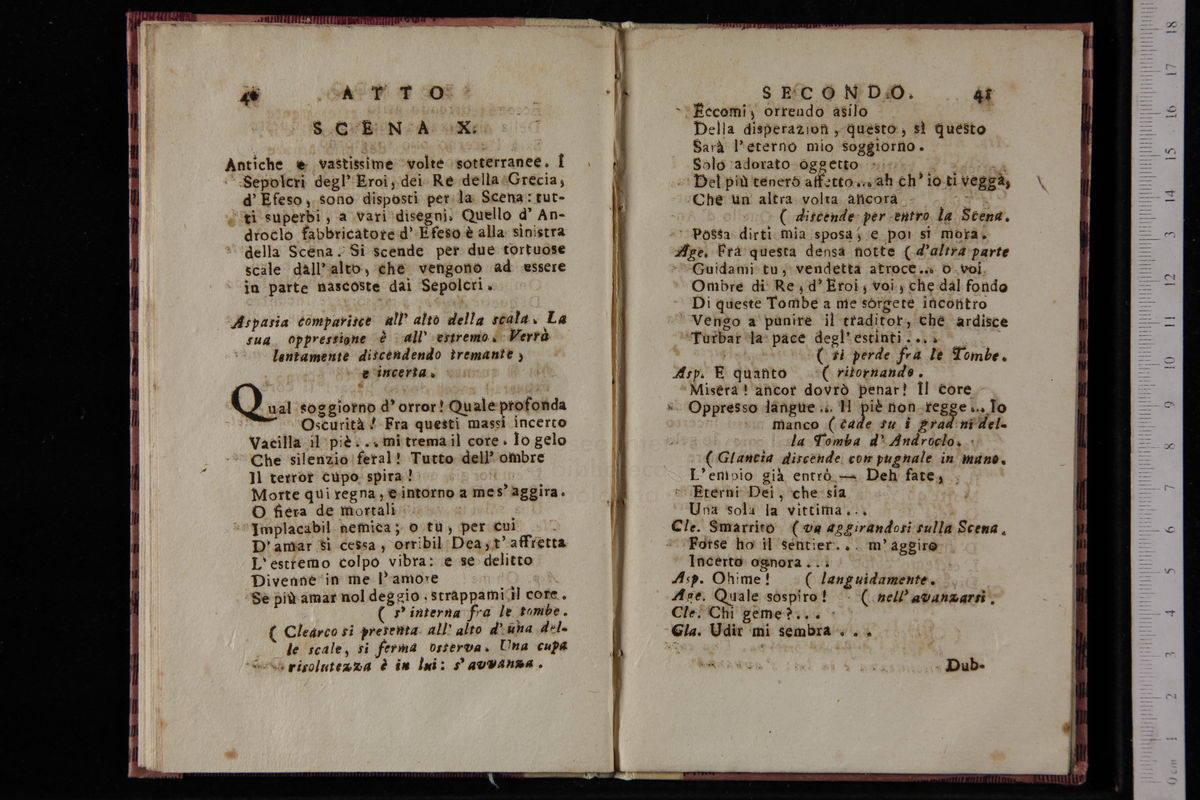 40 ATTO
SCENA X.
Antiche e vastissime volte sotterranee. I
Sepolcri degl' Eroi, dei Re della Grecia,
d' Efeso, sono disposti per la Scena: tut-
ti superbi, a vari disegni. Quello d' An-
droclo fabbricatore d' Efeso è alla sinistra
della Scena. Si scende per due tortuose
scale dall' alto, che vengono ad essere
in parte nascoste dai Sepolcri.
Aspasia comparisce all' alto della scala. La
sua oppressione è all' estremo. Verrà
lentamente discendendo tremante,
e incerta.
Qual soggiorno d' orror! Quale profonda
Oscurità! Fra questi massi incerto
Vacilla il piè... mi trema il core. Io gelo
Che silenzio feral! Tutto dell' ombre
Il terror cupo spira!
Morte qui regna, e intorno a me s' aggira.
O fiera de mortali
Implacabil nemica; o tu, per cui
D' amar si cessa, orribil Dea, t' affretta
L' estremo colpo vibra: e se delitto
Divenne in me l' amore
Se più amar nol deggio, strappami il core.
( s' interna fra le tombe.
( Clearco si presenta all' alto d' una del-
le scale, si ferma osserva. Una cupa
risolutezza è in lui: s' avvanza.
SECONDO. 41
Eccomi, orrendo asilo
Della disperazion, questo, sì questo
Sarà l' eterno mio soggiorno.
Solo adorato oggetto
Del più tenero affetto... ah ch' io ti vegga,
Che un altra volta ancora
( discende per entro la Scena.
Possa dirti mia sposa, e poi si mora.
Age. Fra questa densa notte ( d'altra parte
Guidami tu, vendetta atroce... o voi
Ombre di Re, d' Eroi, voi, che dal fondo
Di queste Tombe a me sorgete incontro
Vengo a punire il traditor, che ardisce
Turbar la pace degl' estinti....
( si perde fra le Tombe.
Asp. E quanto ( ritornando.
Misera! ancor dovrò penar! Il core
Oppresso langue... Il piè non regge... Io
manco ( cade su i gradini del-
la Tomba d' Androclo.
( Glancia discende con pugnale in mano.
L' empio già entrò — Deh fate,
Eterni Dei, che sia
Una sola la vittima...
Cle. Smarrito ( va aggirandosi sulla Scena.
Forse ho il sentier... m' aggiro
Incerto ognora...
Asp. Ohime! ( languidamente.
Age. Quale sospiro! ( nell' avanzarsi.
Cle. Chi geme?...
Gla. Udir mi sembra...
Dub-